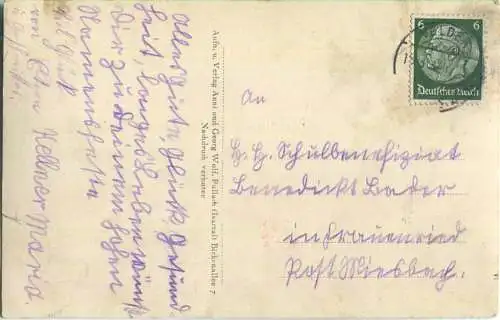 Alles Gute, Glück, Gesund-
heit, langes Leben wünscht
Dir zu Deinem hohen
Namensfeste
Kellner Maria
Aufn. u. Verlag Anni und Georg Wolf, Pullach (Isartal) Birkenallee 7
Nachdruck verboten
6
Deutsches Reich
An
H. H. Schulbenefiziat
Benedickt Bader
in Frauenried
Post Miesbach.